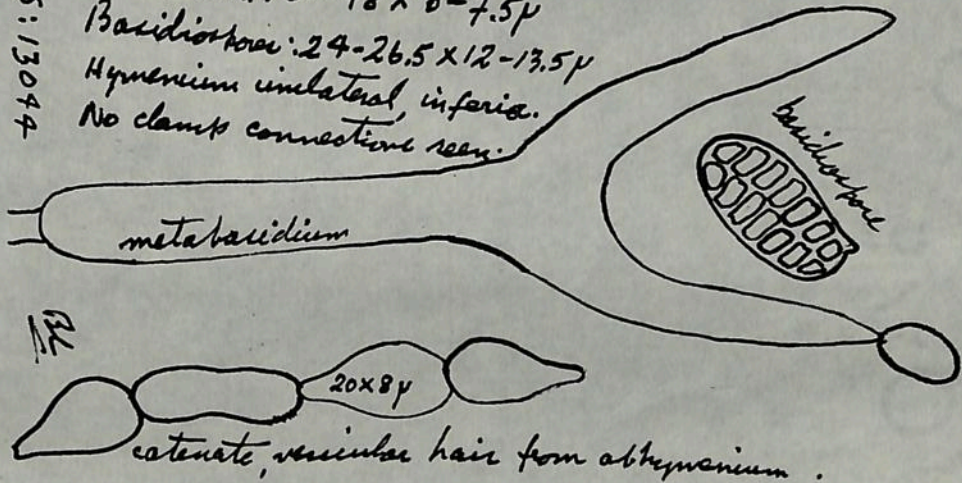 18 x 6-7.5µ
Basidiospores: 24-26.5 x 12-13.5µ
Hymenium unilateral, inferia.
No clamp connections seen.
5:13044
basidiospore
metabasidium
20x8µ
catenate, vesicular hair from abhymenium.